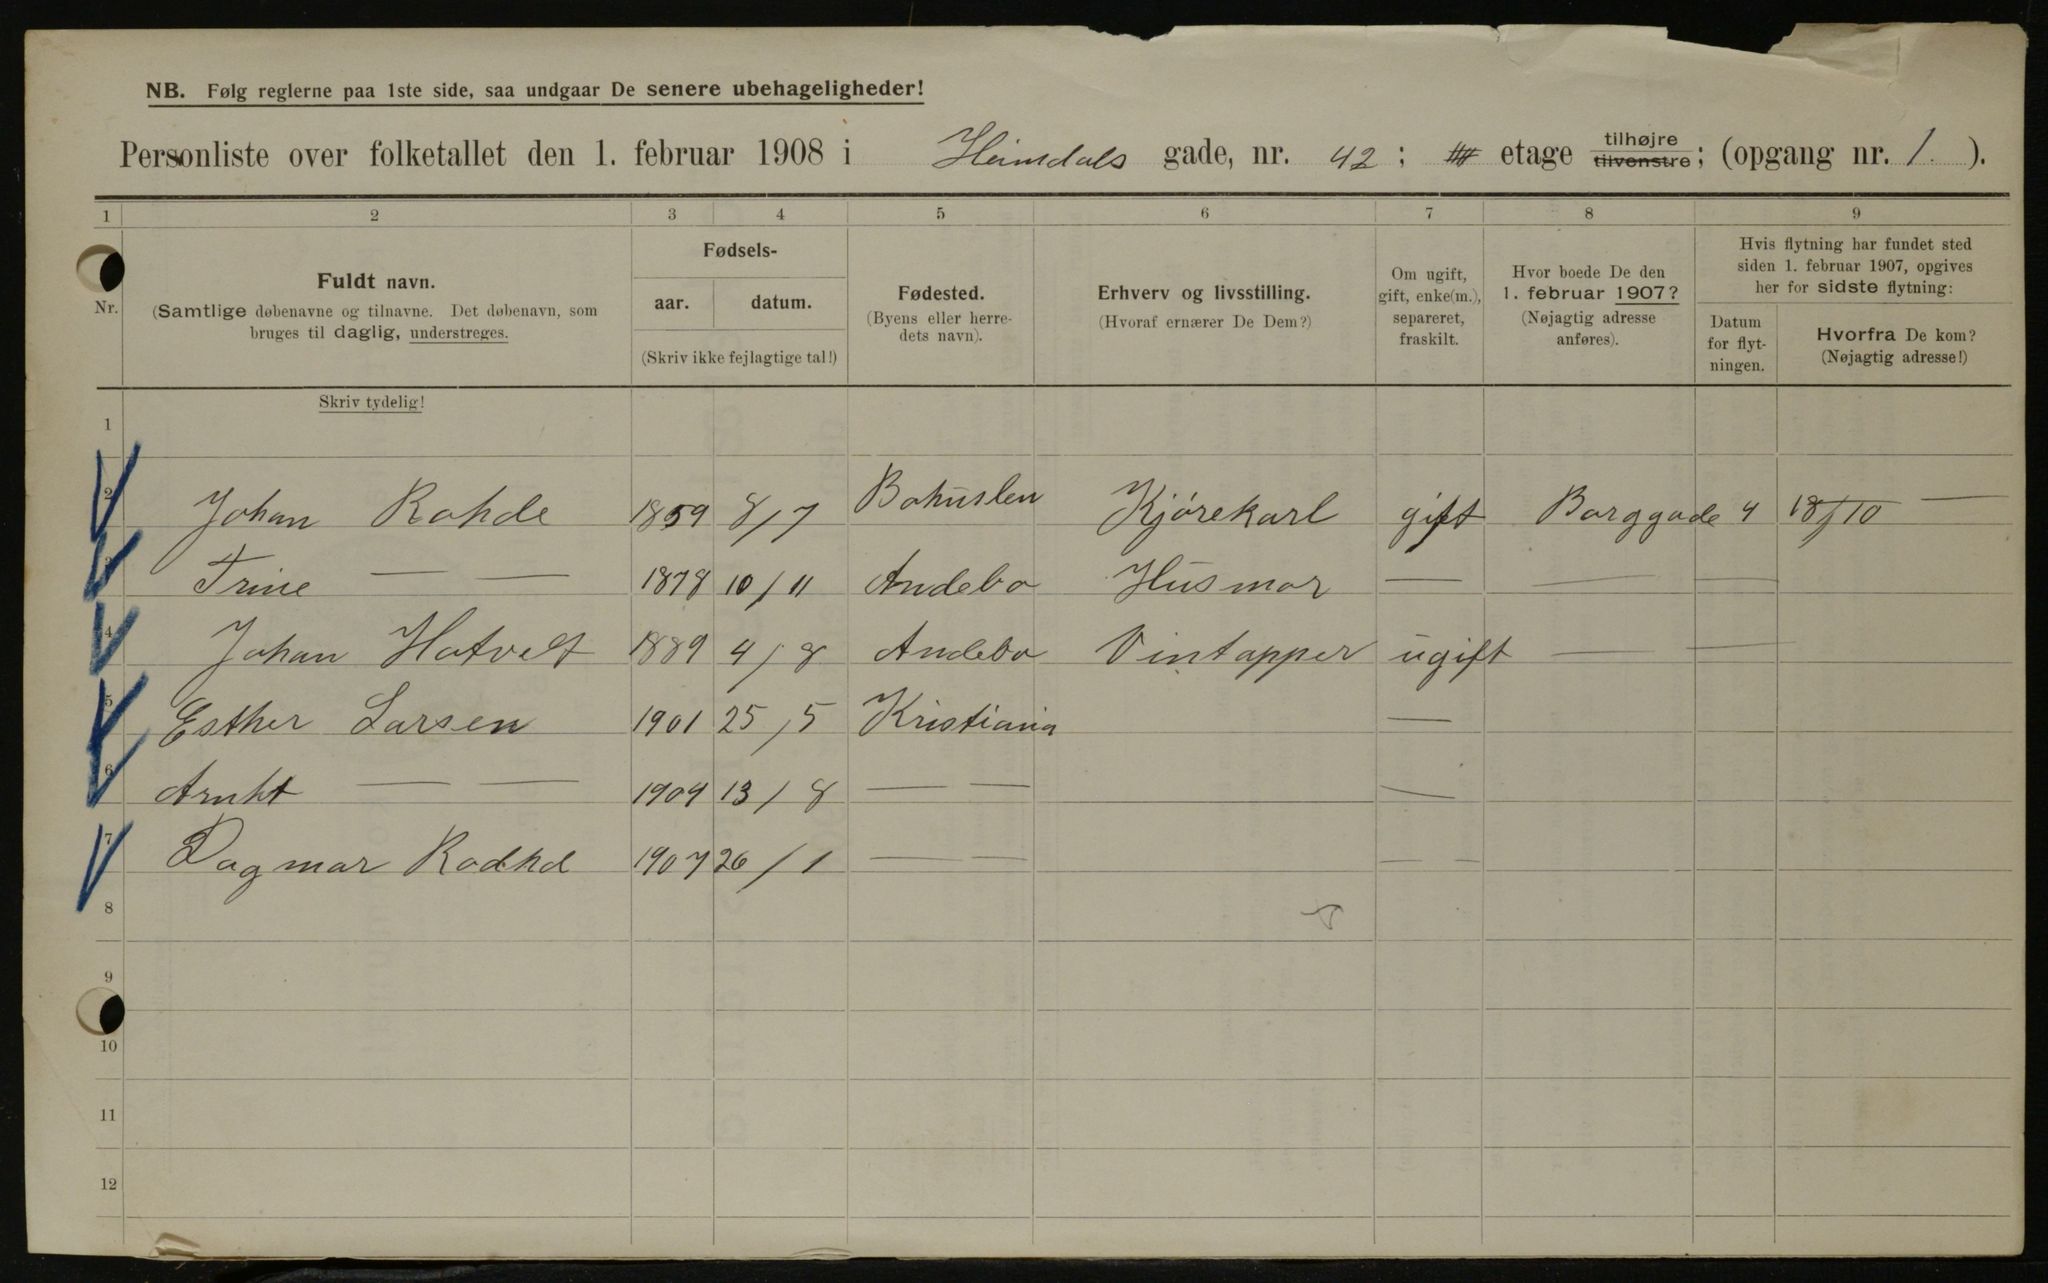 NB. Følg reglerne paa 1ste side, saa undgaar De senere ubehageligheder!
Personliste over folketallet den 1. februar 1908 i Heimdals gade, nr. 42; etage tilhøjre tilvenstre; (opgang nr. 1).
1 2 3 4 5 6 7 8 9
Nr.
Fuldt navn.
(Samtlige døbenavne og tilnavne. Det døbenavn, som
bruges til daglig, understreges.
Fødsels-
aar. datum.
(Skriv ikke fejlagtige tal!)
Fødested.
(Byens eller herre-
dets navn).
Erhverv og livsstilling.
(Hvoraf ernærer De Dem?)
Om ugift,
gift, enke(m.),
separeret,
fraskilt.
Hvor boede De den
1. februar 1907?
(Nøjagtig adresse
anføres).
Hvis flytning har fundet sted
siden 1. februar 1907, opgives
her for sidste flytning:
Datum
for flyt-
ningen.
Hvorfra De kom?
(Nøjagtig adresse!)
Skriv tydelig!
1
2 Johan Rohde 1859 8/7 Bohuslen Kjørekarl gift Borggade 4 18/10 —
3 Trine — — 1878 10/11 Andebo Husmor — — —
4 Johan Hotvelt 1889 4/8 Andebo Vintapper ugift — —
5 Esther Larsen 1901 25/5 Kristiania —
6 — — 1904 13/8 — — —
7 Dagmar Rodhd 1907 26/1 — — — —
8
9
10
11
12